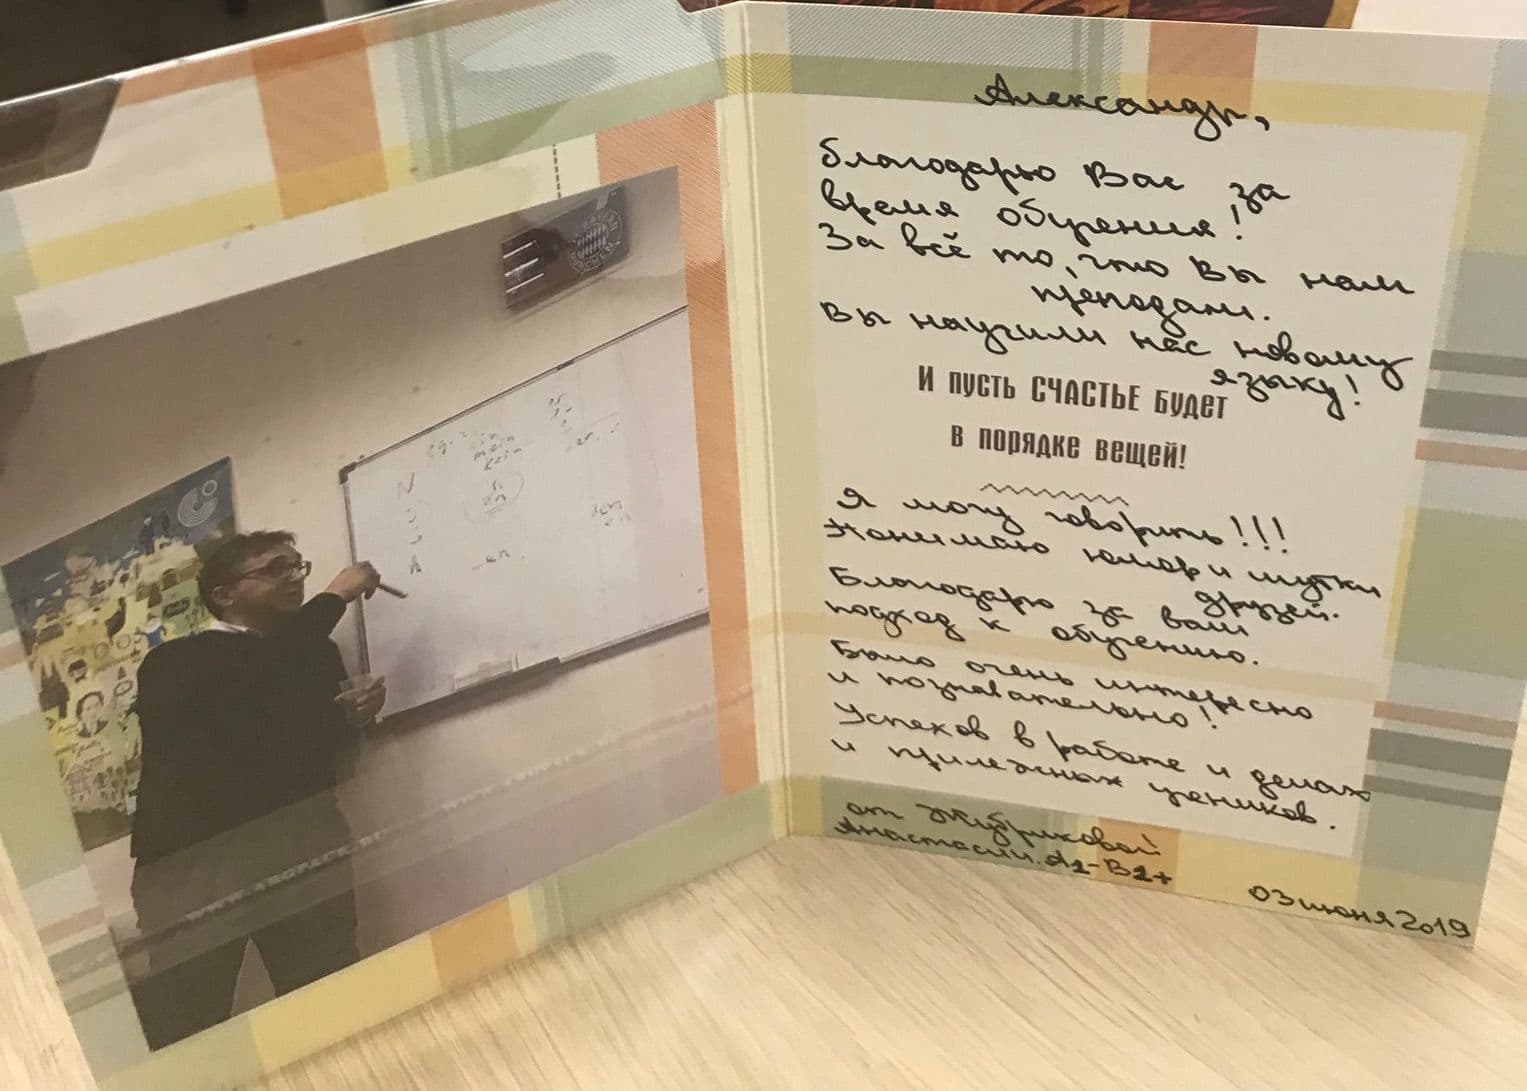 BAYERN
MÜNCHEN
N
A
mein
kein
www.argpack.ru
Александр,
благодарю Вас за
время обучения!
За всё то, что Вы нам
преподали.
Вы научили нас новому
языку!
И пусть СЧАСТЬЕ будет
в порядке вещей!
Я могу говорить!!!
Понимаю юмор и шутки
друзей.
Благодарю за ваш
подход к обучению.
Было очень интересно
и познавательно!
Успехов в работе и делах
и прилежных учеников.
от
Анастасии. A1-B1+
03 июня 2019